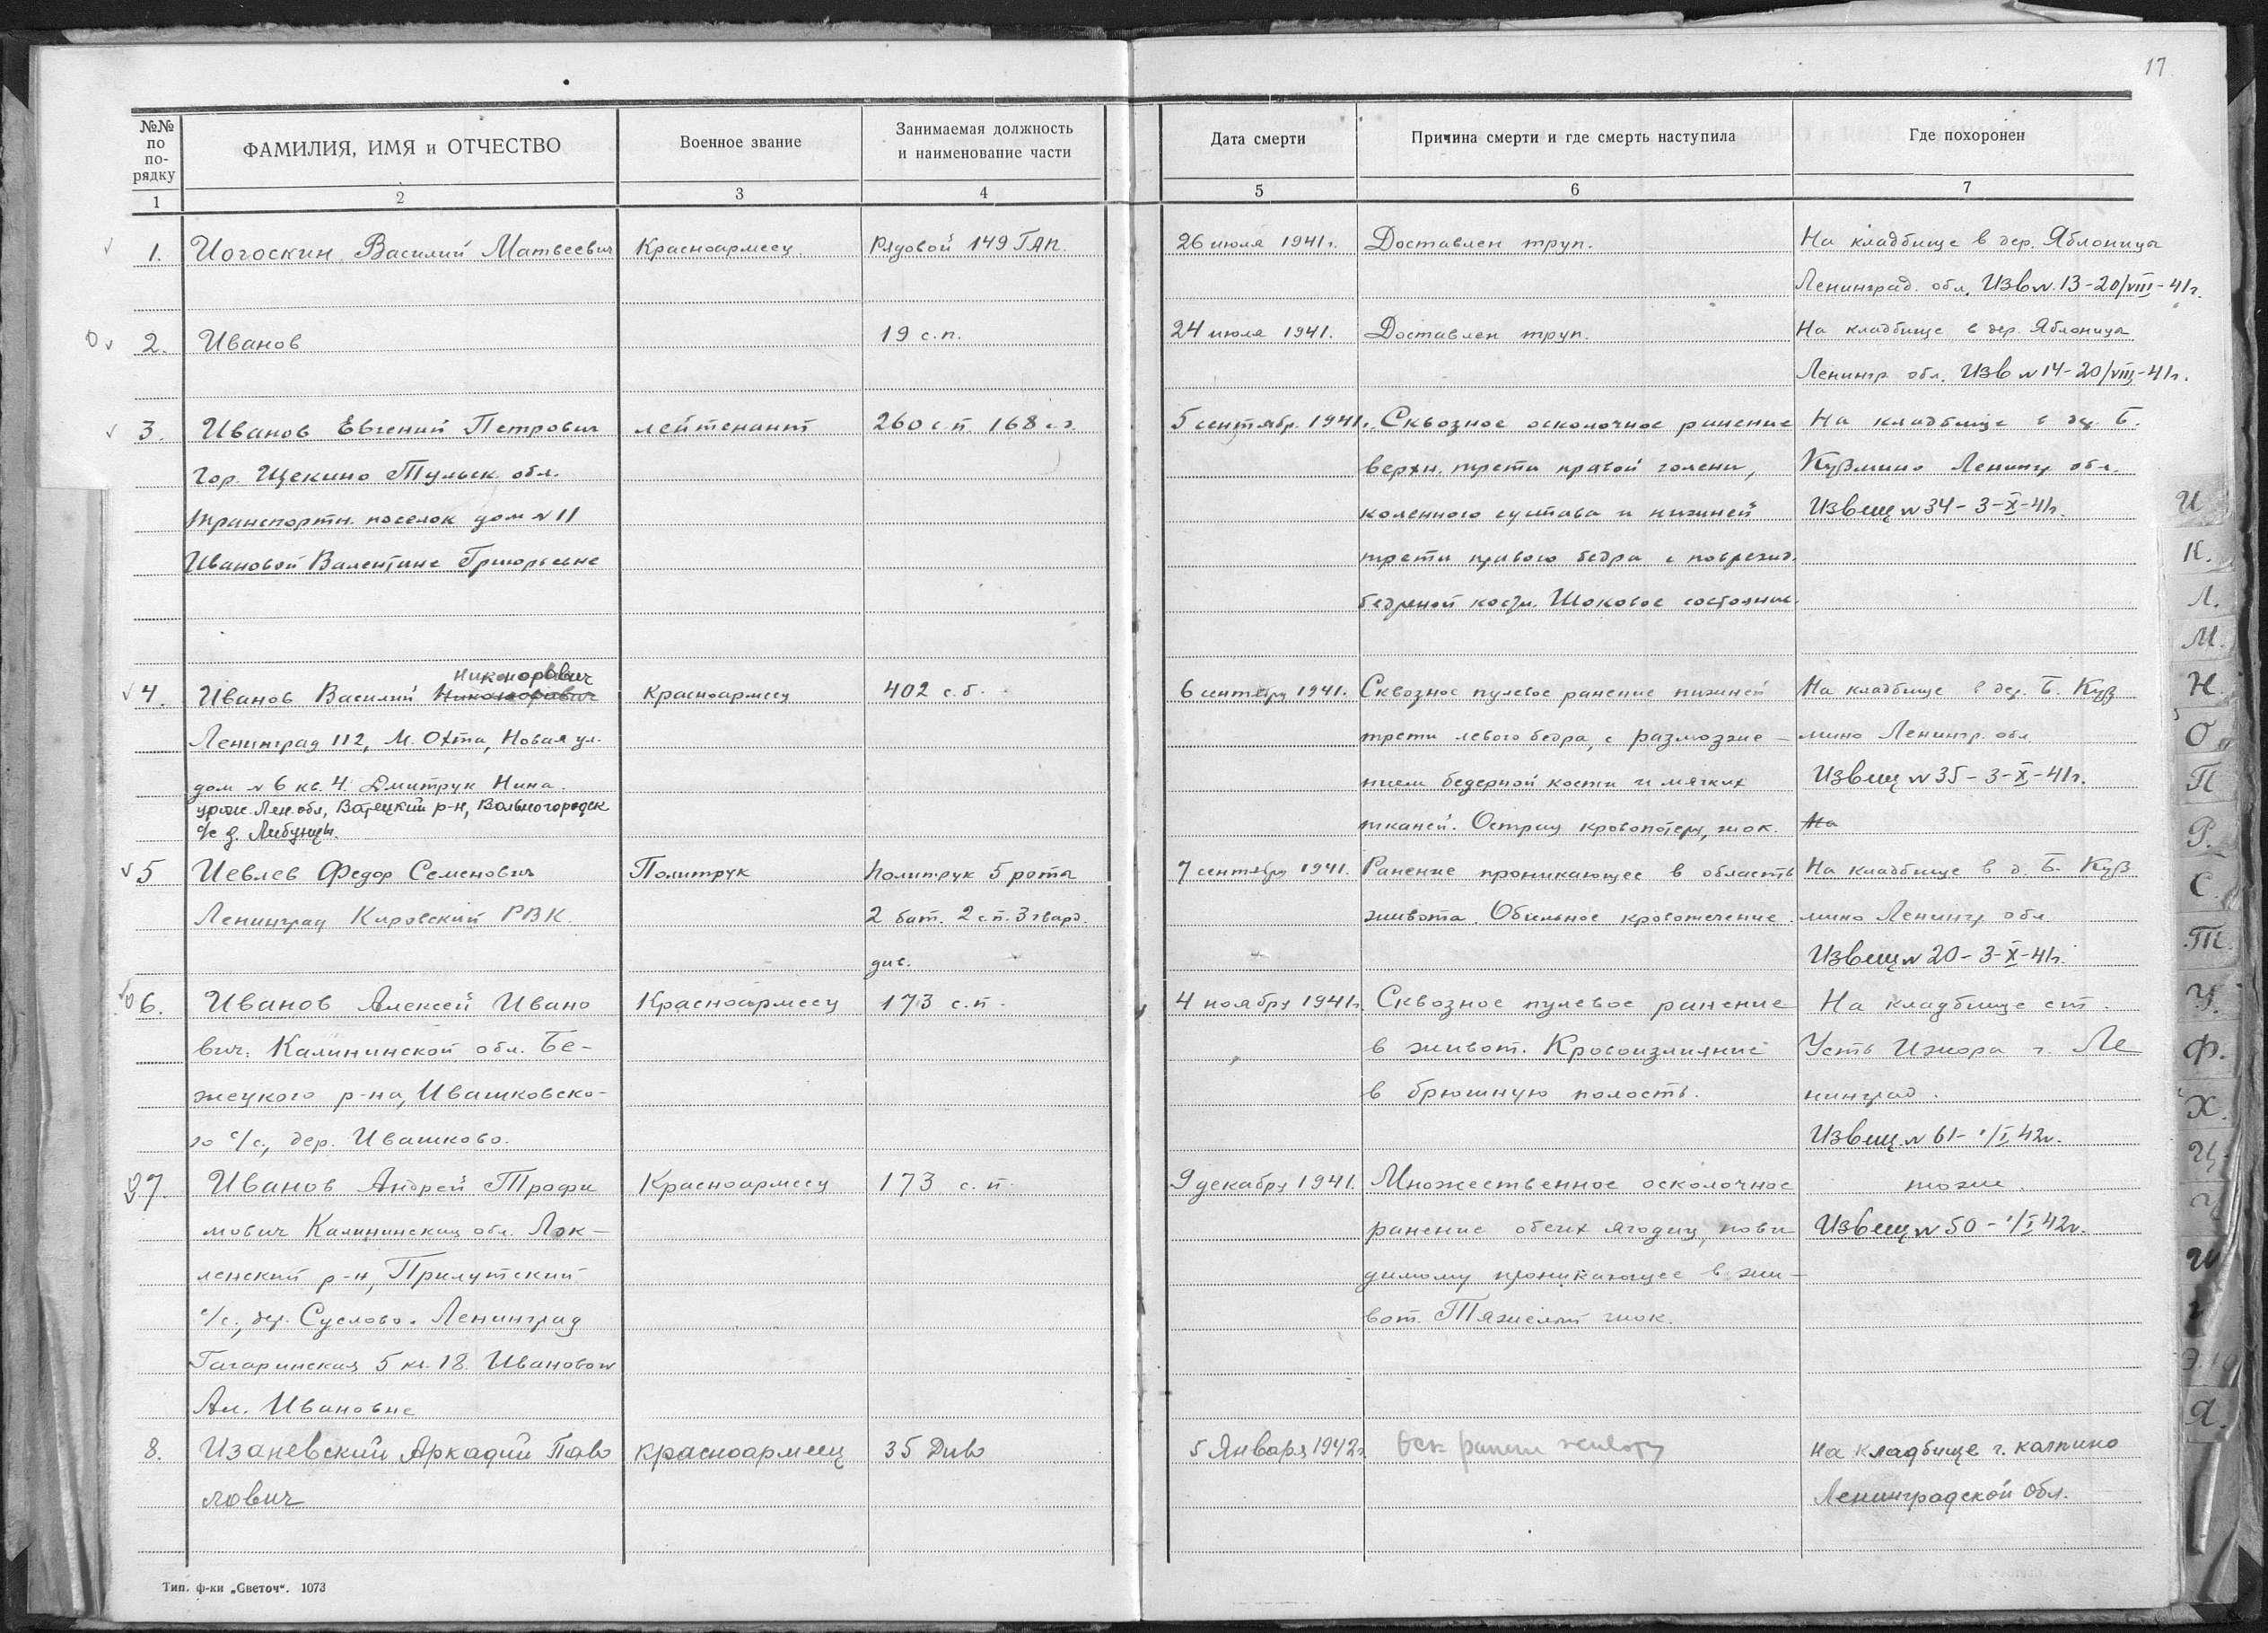 17
№№ по по-рядку
ФАМИЛИЯ, ИМЯ и ОТЧЕСТВО
Военное звание
Занимаемая должность и наименование части
Дата смерти
Причина смерти и где смерть наступила
Где похоронен
1 2 3 4 5 6 7
1. Иогоскин Василий Матвеевич Красноармеец Рядовой 149 ГАП. 26 июля 1941г. Доставлен труп. На кладбище в дер. Яблоницы
Ленинград. обл. Изв №13-20/VIII-41г.
2. Иванов 19 с.п. 24 июля 1941. Доставлен труп. На кладбище в дер. Яблоница
Ленингр. обл. Изв №14-20/VIII-41г.
3. Иванов Евгений Петрович лейтенант 260 с.п 168 с.д. 5 сентябр. 1941г. Сквозное осколочное ранение На кладбище в дер. Б.
Гор. Щекино Тульск. обл. верхн. трети правой голени, Кузмино Ленингр обл.
Транспортн. поселок дом №11 коленного сустава и нижней Извещ №34-3-X-41г.
Ивановой Валентине Григорьевне трети правого бедра с поврежд.
бедреной кости. Шоковое состояние.
Никонорович
4. Иванов Василий Никонорович Красноармеец 402 с.б. 6 сентября 1941. Сквозное пулевое ранение нижней На кладбище в дер. Б. Куз
Ленинград 112, М. Охта, Новая ул. трети левого бедра, с размозже- мино Ленингр. обл
дом №6 кв. 4. Дмитрук Нина. нием бедерной кости и мягких Извещ №35-3-X-41г.
урож. Лен. обл, Батецкий р-н, Вольногородск
с/с д. Либуницы. тканей. Острая кровопотеря, шок. На
5 Иевлев Федор Семенович Политрук Политрук 5 рота 7 сентября 1941. Ранение проникающее в область На кладбище в д. Б. Куз
Ленинград Кировский РВК. 2 бат. 2 с.п. 3 гвард. живота. Обильное кровотечение. мино Ленингр обл.
див. Извещ №20-3-X-41г.
6. Иванов Алексей Ивано Красноармеец 173 с.п. 4 ноября 1941г. Сквозное пулевое ранение На кладбище ст.
вич. Калининской обл. Бе- в живот. Кровоизлияние Усть Ижора г. Ле
жецкого р-на, Ивашковско- в брюшную полость. нинград.
го с/с, дер. Ивашково. Извещ. №61-1/I 42г.
7. Иванов Андрей Трофи Красноармеец 173 с.п. 9 декабря 1941. Множественное осколочное тоже
мович Калининская обл. Лок- ранение обеих ягодиц, пови Извещ №50-1/I 42г.
ленский р-н, Прилутский димому проникающее в жи-
с/с, дер. Суслово. Ленинград вот. Тяжелый шок.
Гагаринская 5 кв. 18. Ивановой
Ал. Ивановне
8. Изаневский Аркадий Павло красноармеец 35 Див 5 Января 1942г. Оск ранен живота на кладбище г. Колпино
лович Ленинградской Обл.
Тип. ф-ки „Светоч“. 1073
И
К.
Л.
М.
Н.
О
П
Р.
С.
Т.
У.
Ф.
Х.
Ц.
Ч
Ш
Я.